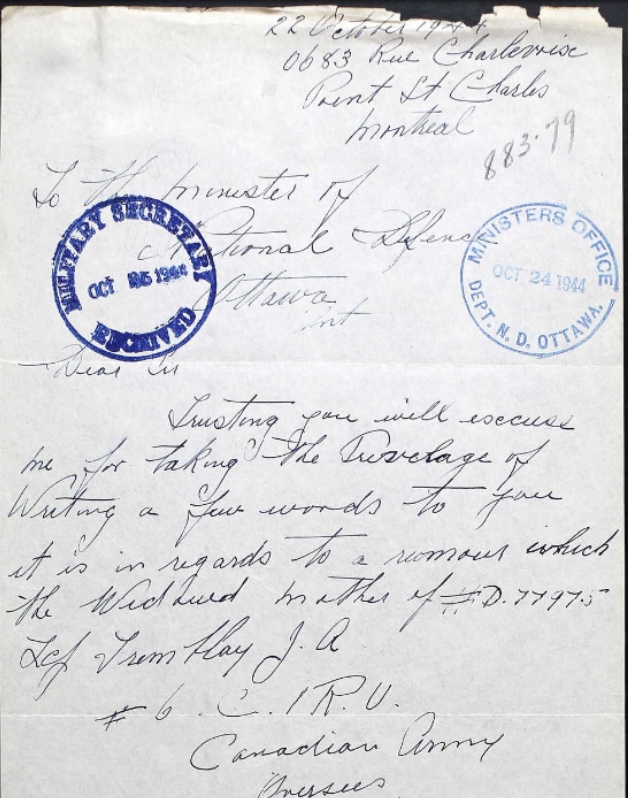 22 October 1944
0683 Rue Charlevoix
Point St Charles
Montreal
883-79
To the Minister of
National Defence
Ottawa
Ont
MILITARY SECRETARY
OCT 1944
RECEIVED
MINISTERS OFFICE
OCT 24 1944
DEPT. N. D. OTTAWA.
Dear Sir
Trusting you will excuse
me, for taking the Privelage of
Writing a few words to you
it is in regards to a rumour which
the Widowed mother of # D.77975
Tremblay J. A
# 6. C. I R. U.
Canadian Army
Overseas